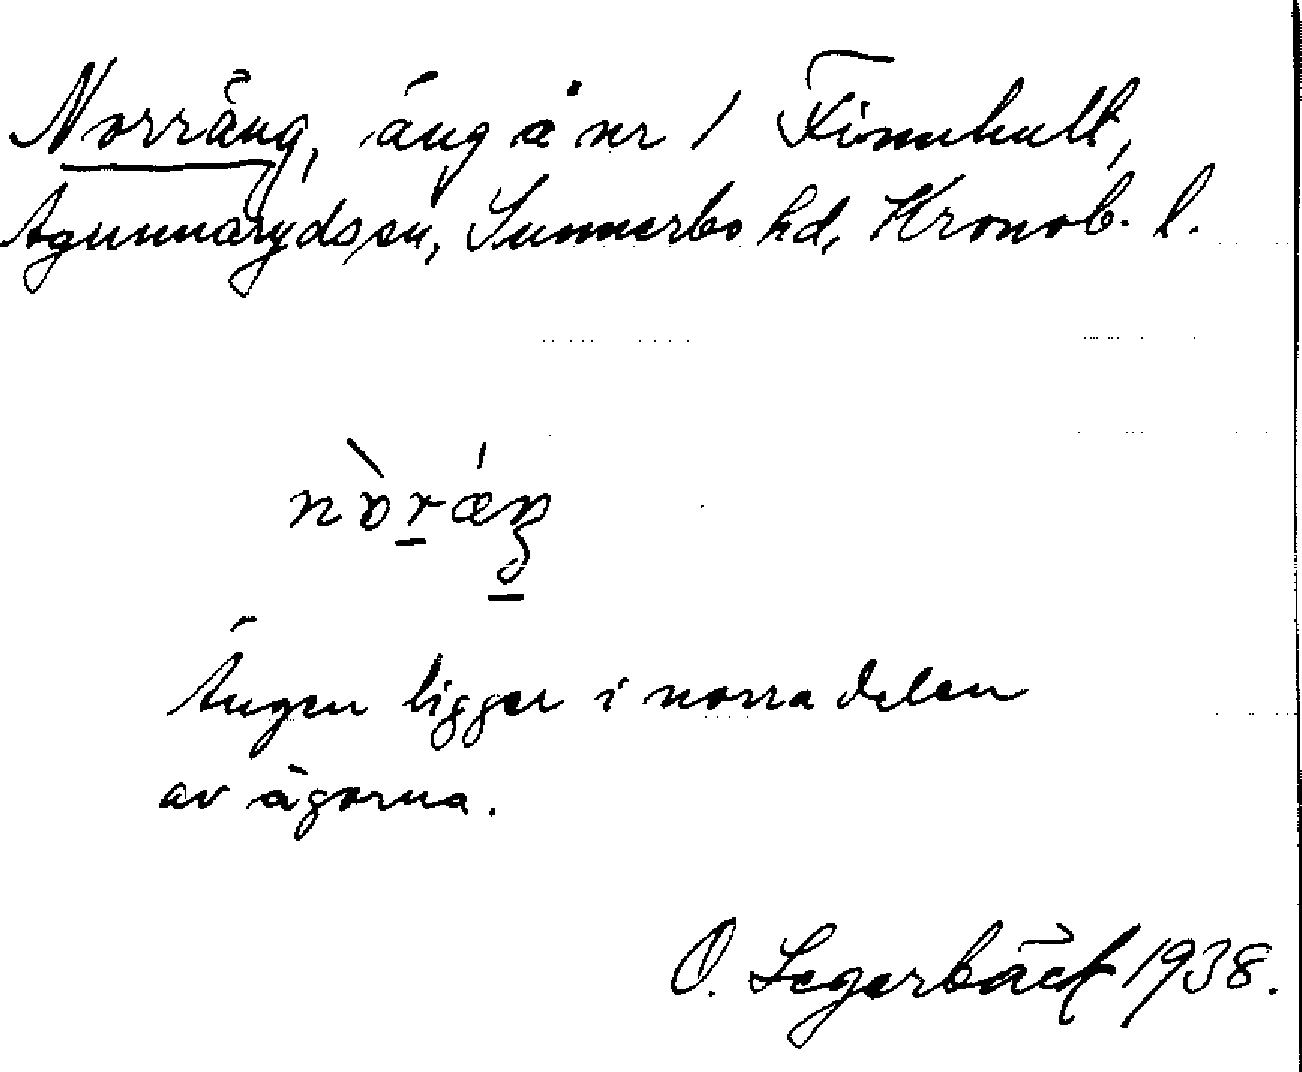 Norräng, äng å nr 1 Finnhult,
Agunnaryds sn, Sunnerbo hd, Kronob. l.
nòrǽŋ
Ängen ligger i norra delen
av ägorna.
O. Segerbäck 1938.